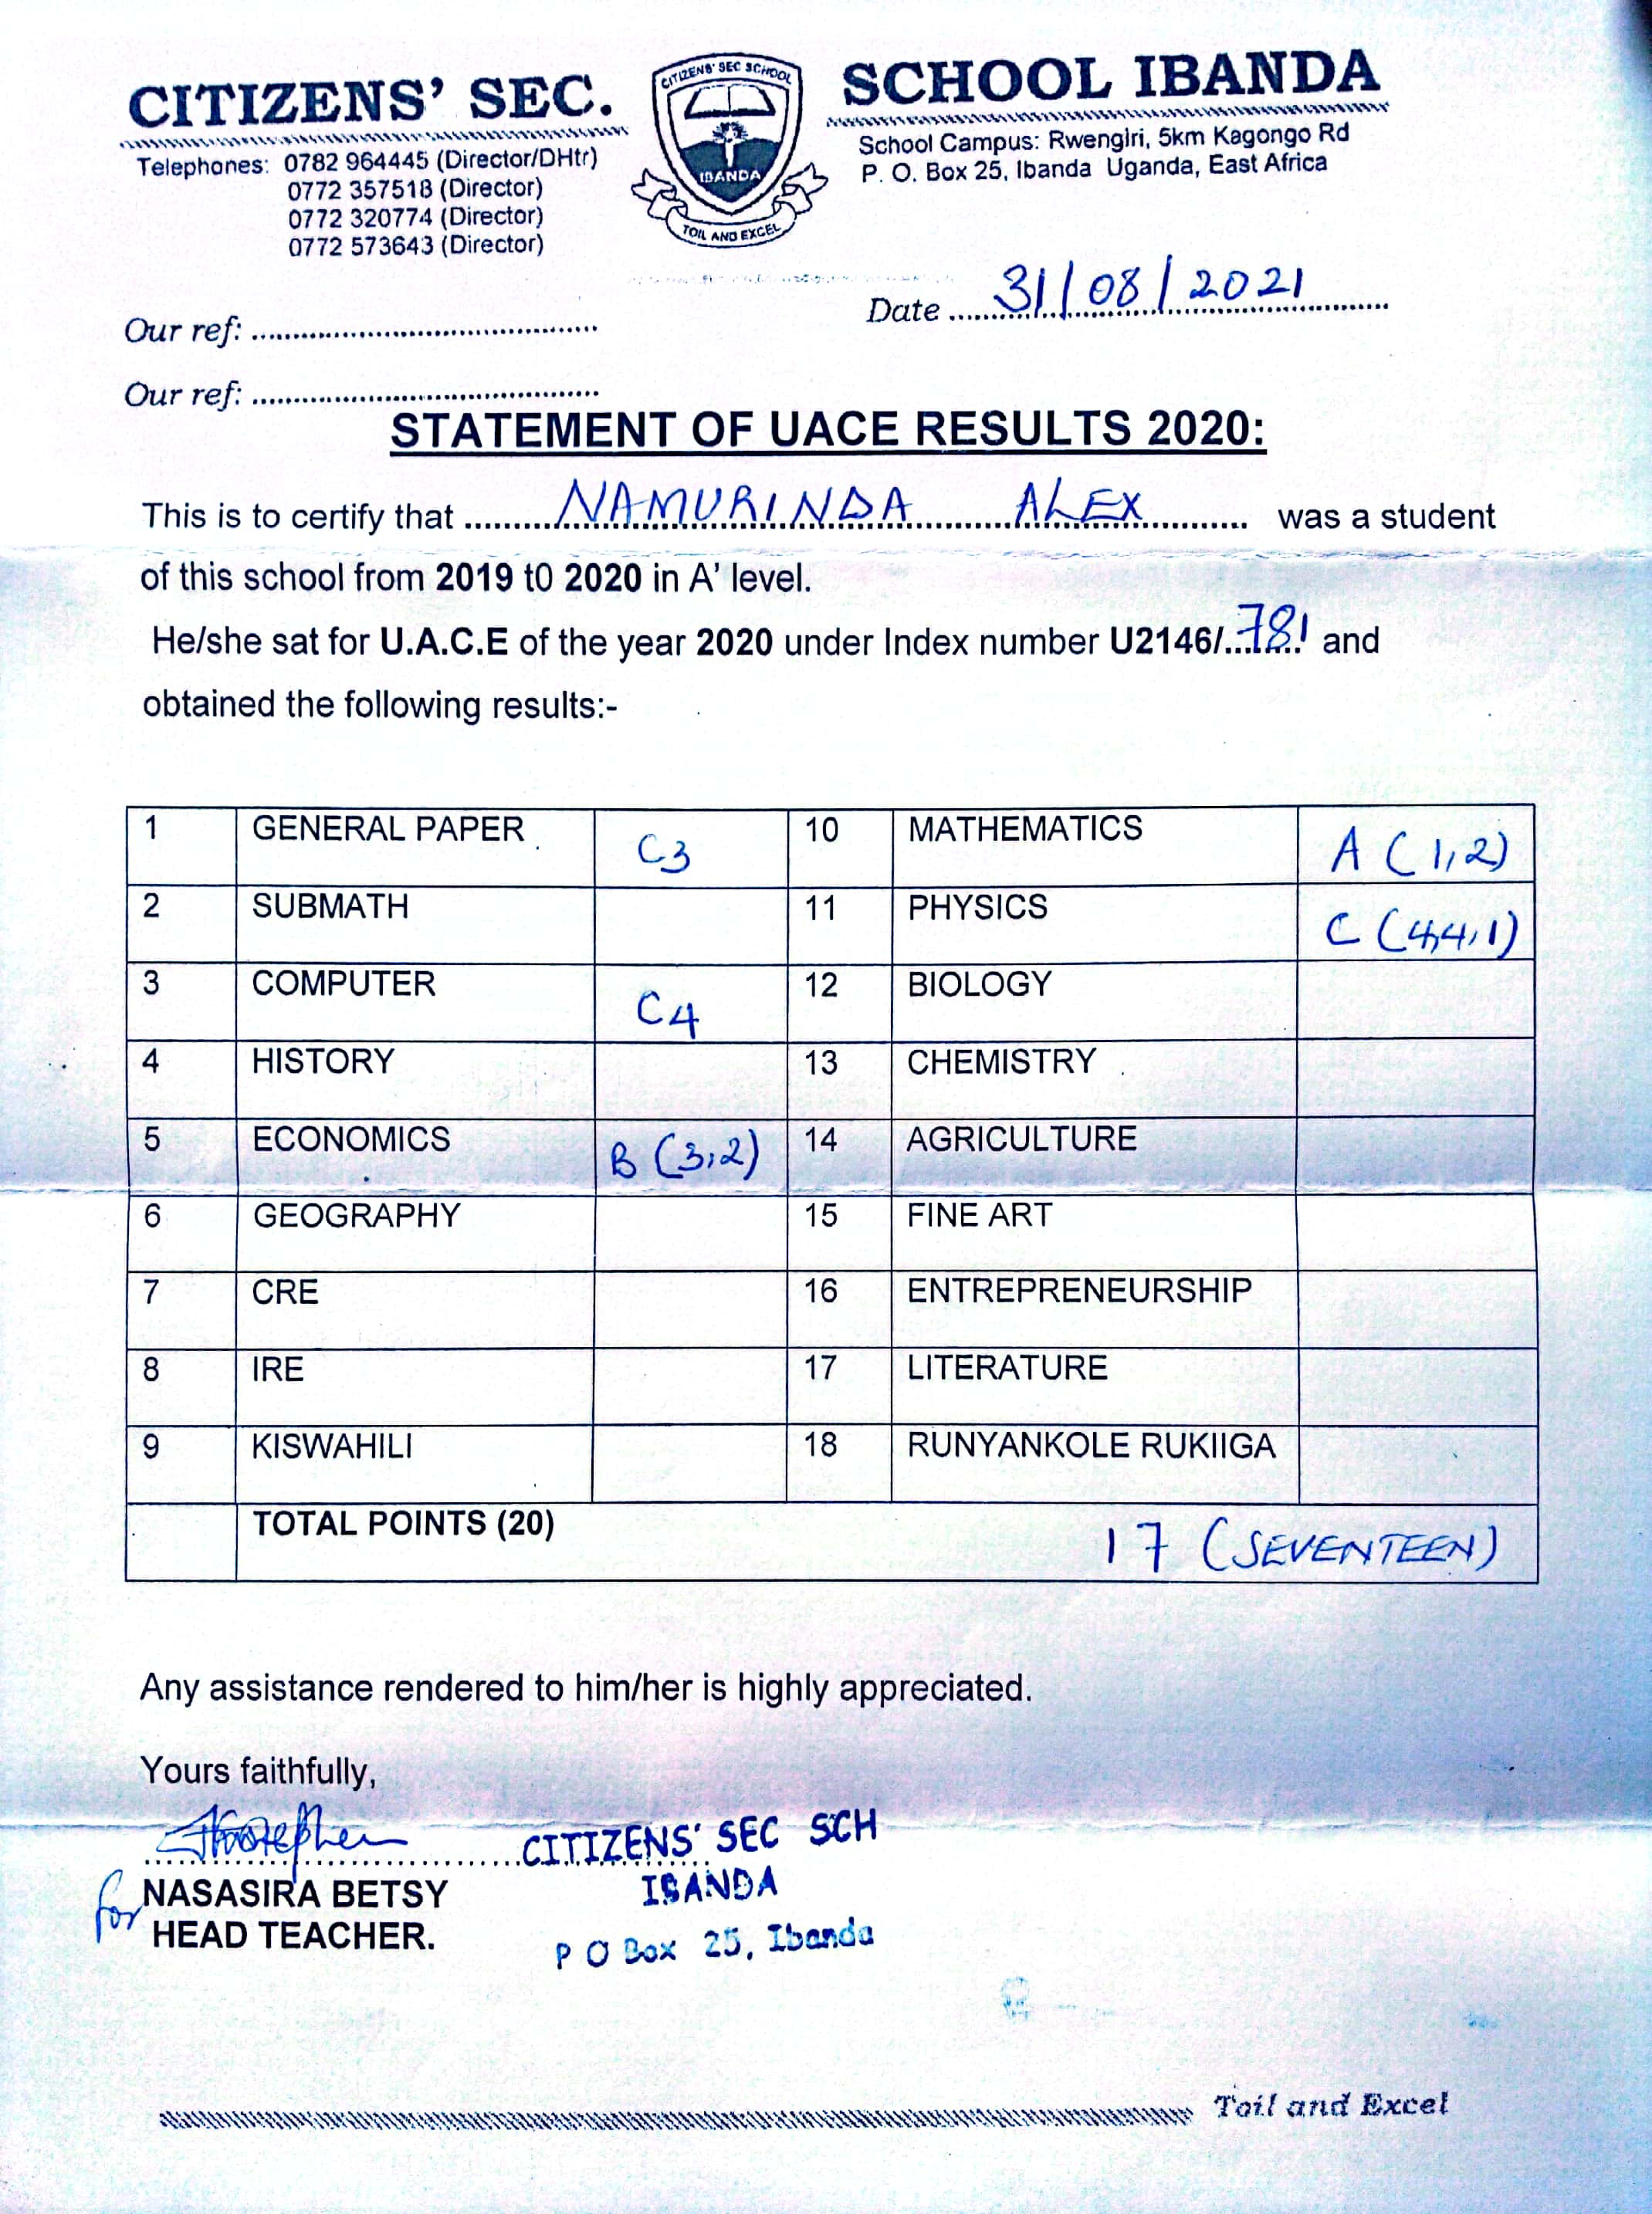 CITIZENS' SEC. SCHOOL IBANDA
CITIZENS' SEC SCHOOL
IBANDA
TOIL AND EXCEL
Telephones: 0782 964445 (Director/DHtr)
0772 357518 (Director)
0772 320774 (Director)
0772 573643 (Director)
School Campus: Rwengiri, 5km Kagongo Rd
P. O. Box 25, Ibanda Uganda, East Africa
Date 31/08/2021
Our ref:
Our ref:
STATEMENT OF UACE RESULTS 2020:
This is to certify that NAMURINDA ALEX was a student
of this school from 2019 t0 2020 in A' level.
He/she sat for U.A.C.E of the year 2020 under Index number U2146/781 and
obtained the following results:-
1 GENERAL PAPER C3 10 MATHEMATICS A (1,2)
2 SUBMATH 11 PHYSICS C (4,4,1)
3 COMPUTER C4 12 BIOLOGY
4 HISTORY 13 CHEMISTRY
5 ECONOMICS B (3,2) 14 AGRICULTURE
6 GEOGRAPHY 15 FINE ART
7 CRE 16 ENTREPRENEURSHIP
8 IRE 17 LITERATURE
9 KISWAHILI 18 RUNYANKOLE RUKIIGA
TOTAL POINTS (20) 17 (SEVENTEEN)
Any assistance rendered to him/her is highly appreciated.
Yours faithfully,
CITIZENS' SEC SCH
IBANDA
P O Box 25, Ibanda
for NASASIRA BETSY
HEAD TEACHER.
Toil and Excel